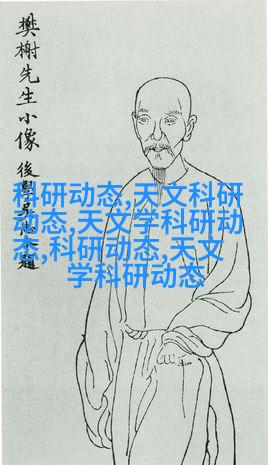 樊榭先生小像
後學
題
科研动态,天文科研
动态,天文学科研动
态,科研动态,天文
学科研动态